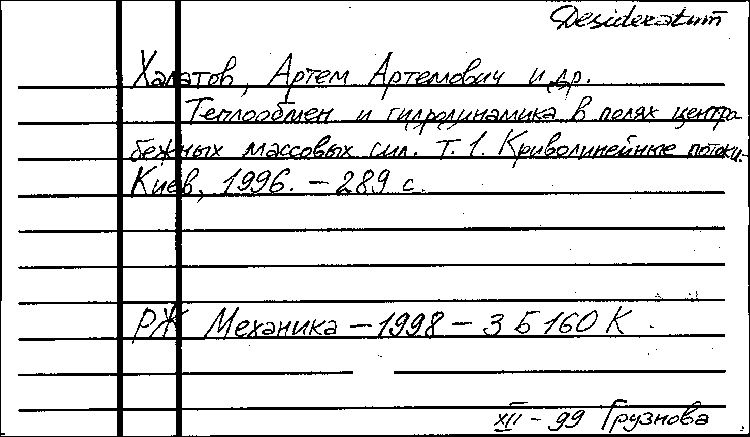 Desideratum
Халатов, Артем Артемович и др.
Теплообмен и гидродинамика в полях центро
бежных массовых сил. Т. 1. Криволинейные потоки.-
Киев, 1996. - 289 с.
РЖ Механика - 1998 - 3 Б 160 К.
XII - 99 Грузнова